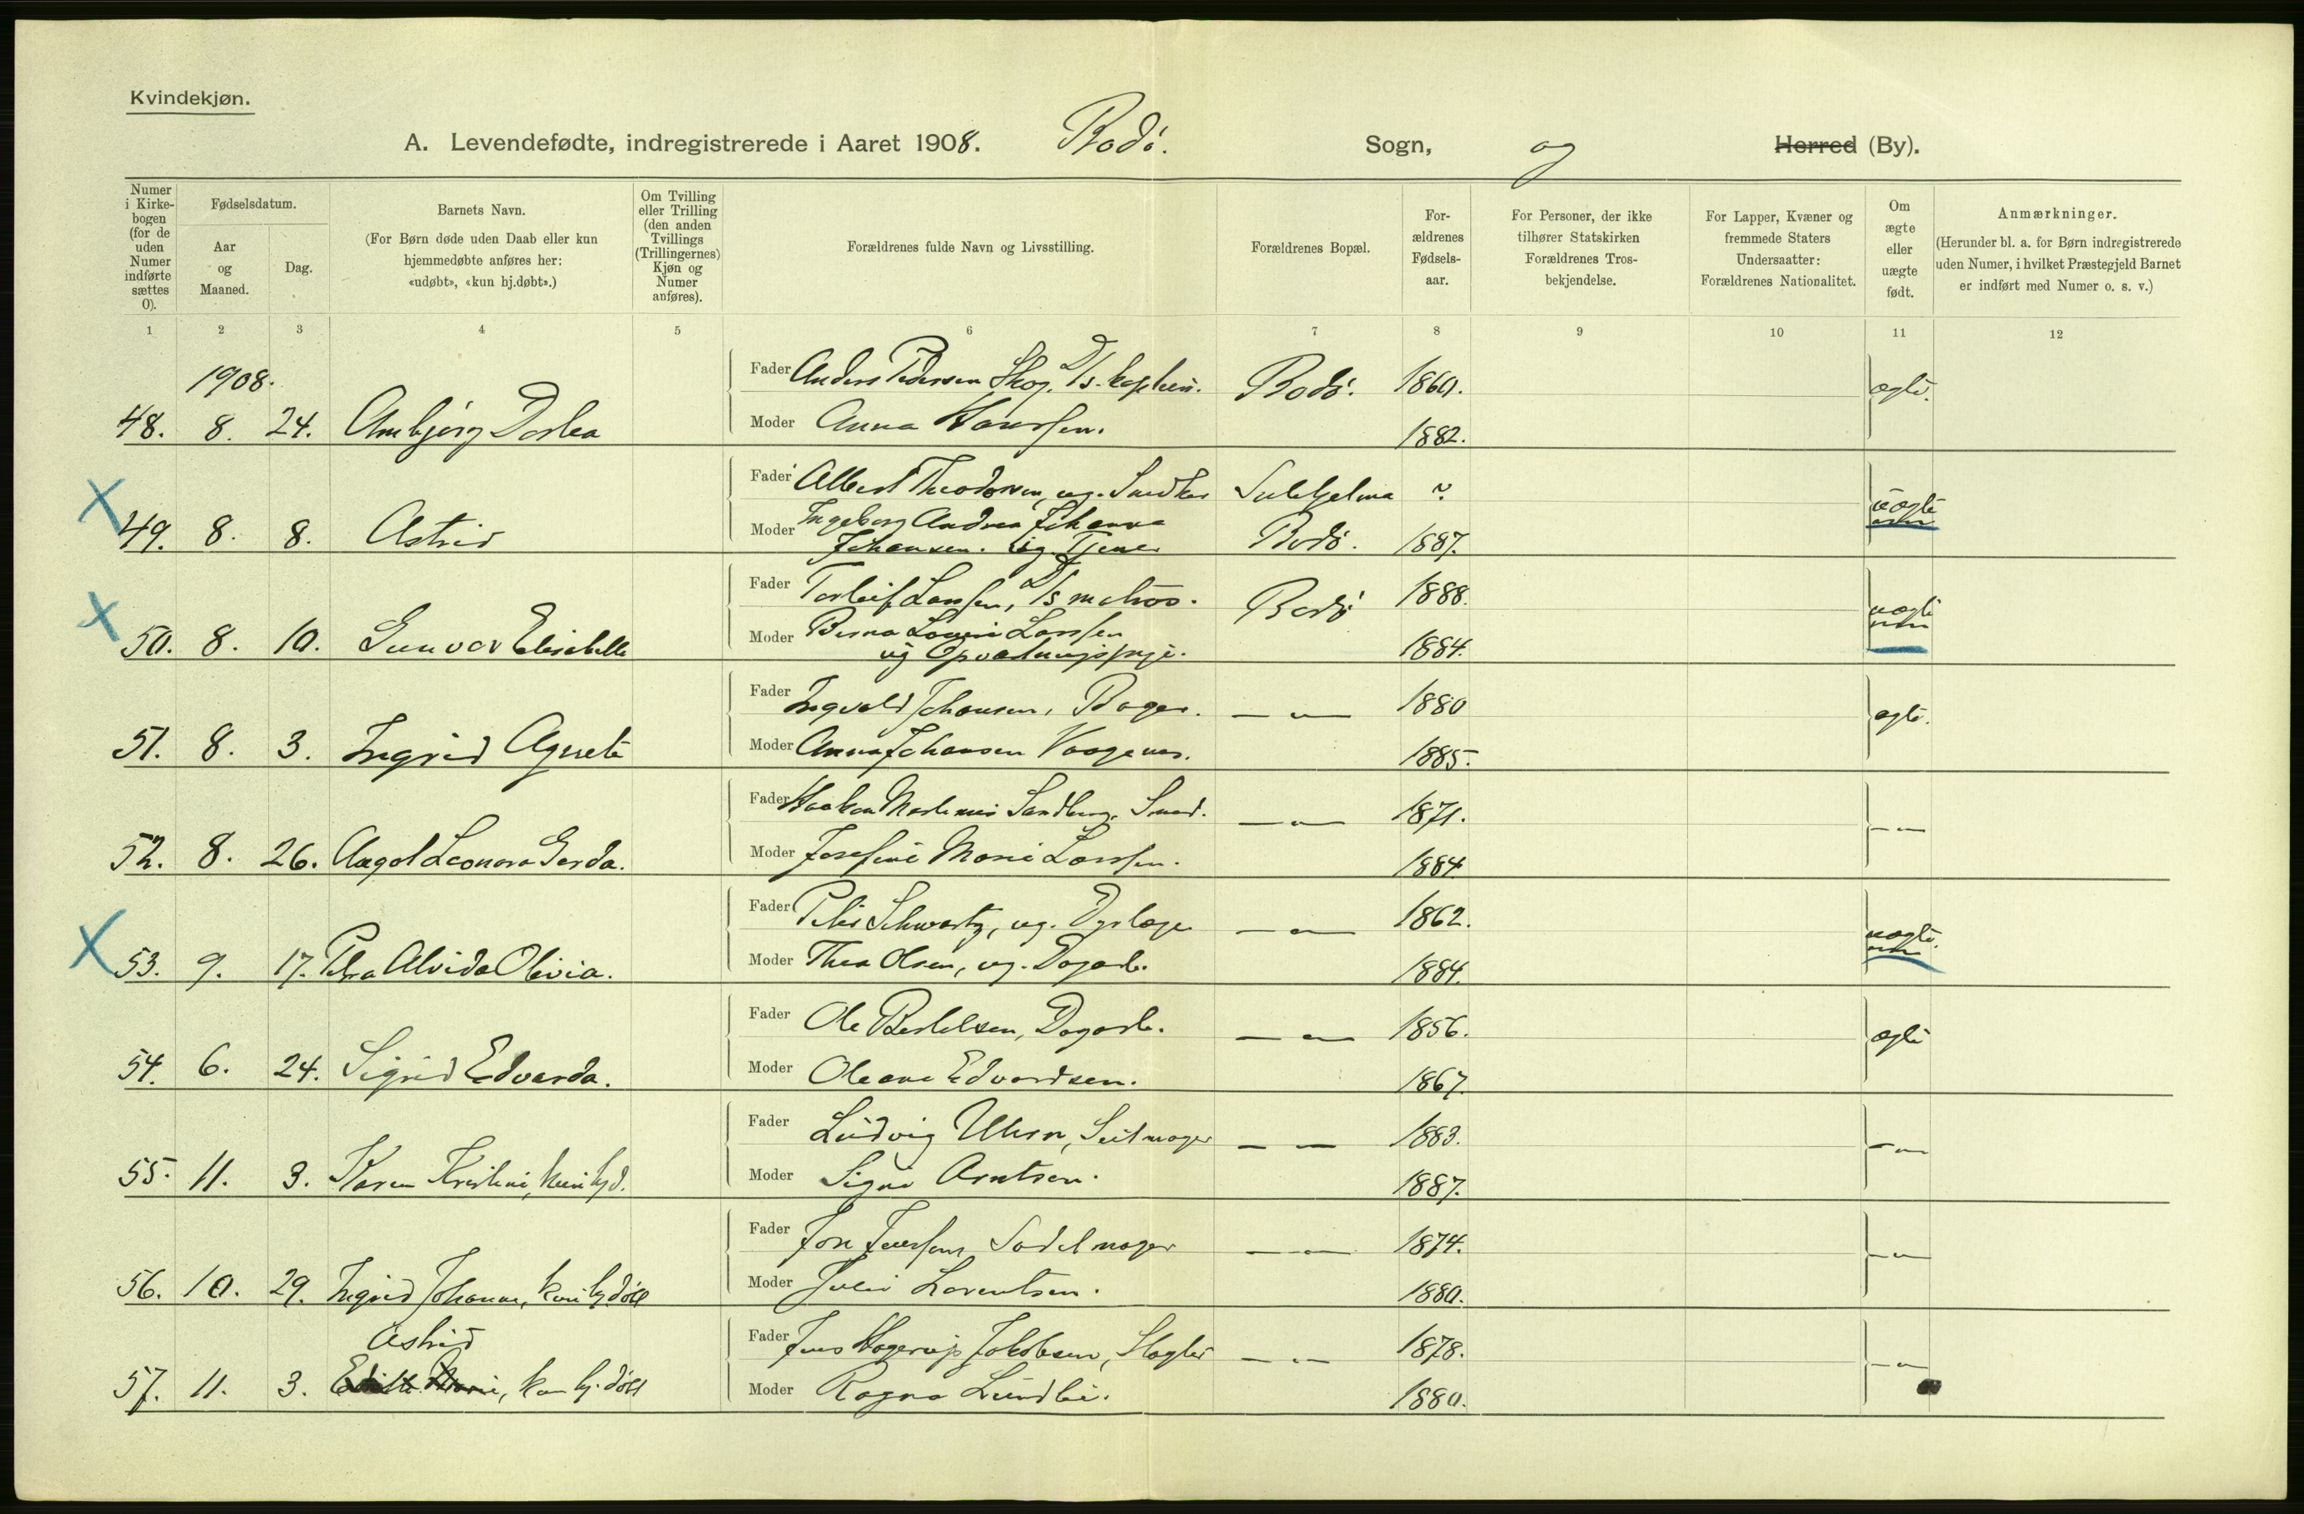 Kvindekjøn.
A. Levendefødte, indregistrerede i Aaret 1908. Bodö. Sogn, og Herred (By).
Numer i Kirkebogen (for de uden Numer indførte sættes 0).
Fødselsdatum.
Aar og Maaned.
Dag.
Barnets Navn.
(For Børn døde uden Daab eller kun hjemmedøbte anføres her: «udøbt», «kun hj.døbt».)
Om Tvilling eller Trilling (den anden Tvillings (Trillingernes) Kjøn og Numer anføres).
Forældrenes fulde Navn og Livsstilling.
Forældrenes Bopæl.
Forældrenes Fødselsaar.
For Personer, der ikke tilhører Statskirken Forældrenes Trosbekjendelse.
For Lapper, Kvæner og fremmede Staters Undersaatter: Forældrenes Nationalitet.
Om ægte eller uægte født.
Anmærkninger.
(Herunder bl. a. for Børn indregistrerede uden Numer, i hvilket Præstegjeld Barnet er indført med Numer o. s. v.)
1 2 3 4 5 6 7 8 9 10 11 12
1908.
Fader Anders Pedersen Skog, D/s. kaptein. Bodö. 1860. ægte.
48. 8. 24. Ambjörg Dorlea Moder Anna Hanssen. 1882.
Fader Albert Theodorsen, ug. Snedker Sulitjelma ? uægte
X 49. 8. 8. Astrid Moder Ingeborg Andrea Johanna
Johansen. ug. Tjener Bodö. 1887.
Fader Torleif Larssen, D/s matros. Bodö 1888. uægte
X 50. 8. 10. Gunvor Elisabeth Moder Berna Lovise Larssen
ug Opvartningspige. 1884.
Fader Ingvald Johansen, Bager. — " — 1880 ægte.
51. 8. 3. Ingrid Agnete Moder Anna Johansen Vaagenes. 1885.
Fader Haakon Martinus Sandberg, Smed. — " — 1871. — " —
52. 8. 26. Aagot Leonora Gerda. Moder Josefine Marie Larssen. 1884
Fader Peter Schwartz, ug. Dyrlæge — " — 1862. uægte.
X 53. 9. 17. Petra Alvida Olivia. Moder Thea Olsen, ug. Dagarb. 1884.
Fader Ole Bertelsen, Dagarb. — " — 1856. ægte
54. 6. 24. Sigrid Edvarda. Moder Oleane Edvardsen. 1867.
Fader Ludvig Olsen, Seilmager — — 1883. — " —
55. 11. 3. Karen Kristine, kun hjd. Moder Signe Arntsen. 1887.
Fader Jon Jenssen Sadelmager — " — 1874. — " —
56. 10. 29. Ingrid Johanne, kun hj.döbt Moder Julie Lorentsen. 1880.
Astrid Fader Jens Hagerup Jakobsen, Slagter — " — 1878. — " —
57. 11. 3. Edith Marie, kun hj. döbt Moder Ragna Lundli. 1880.